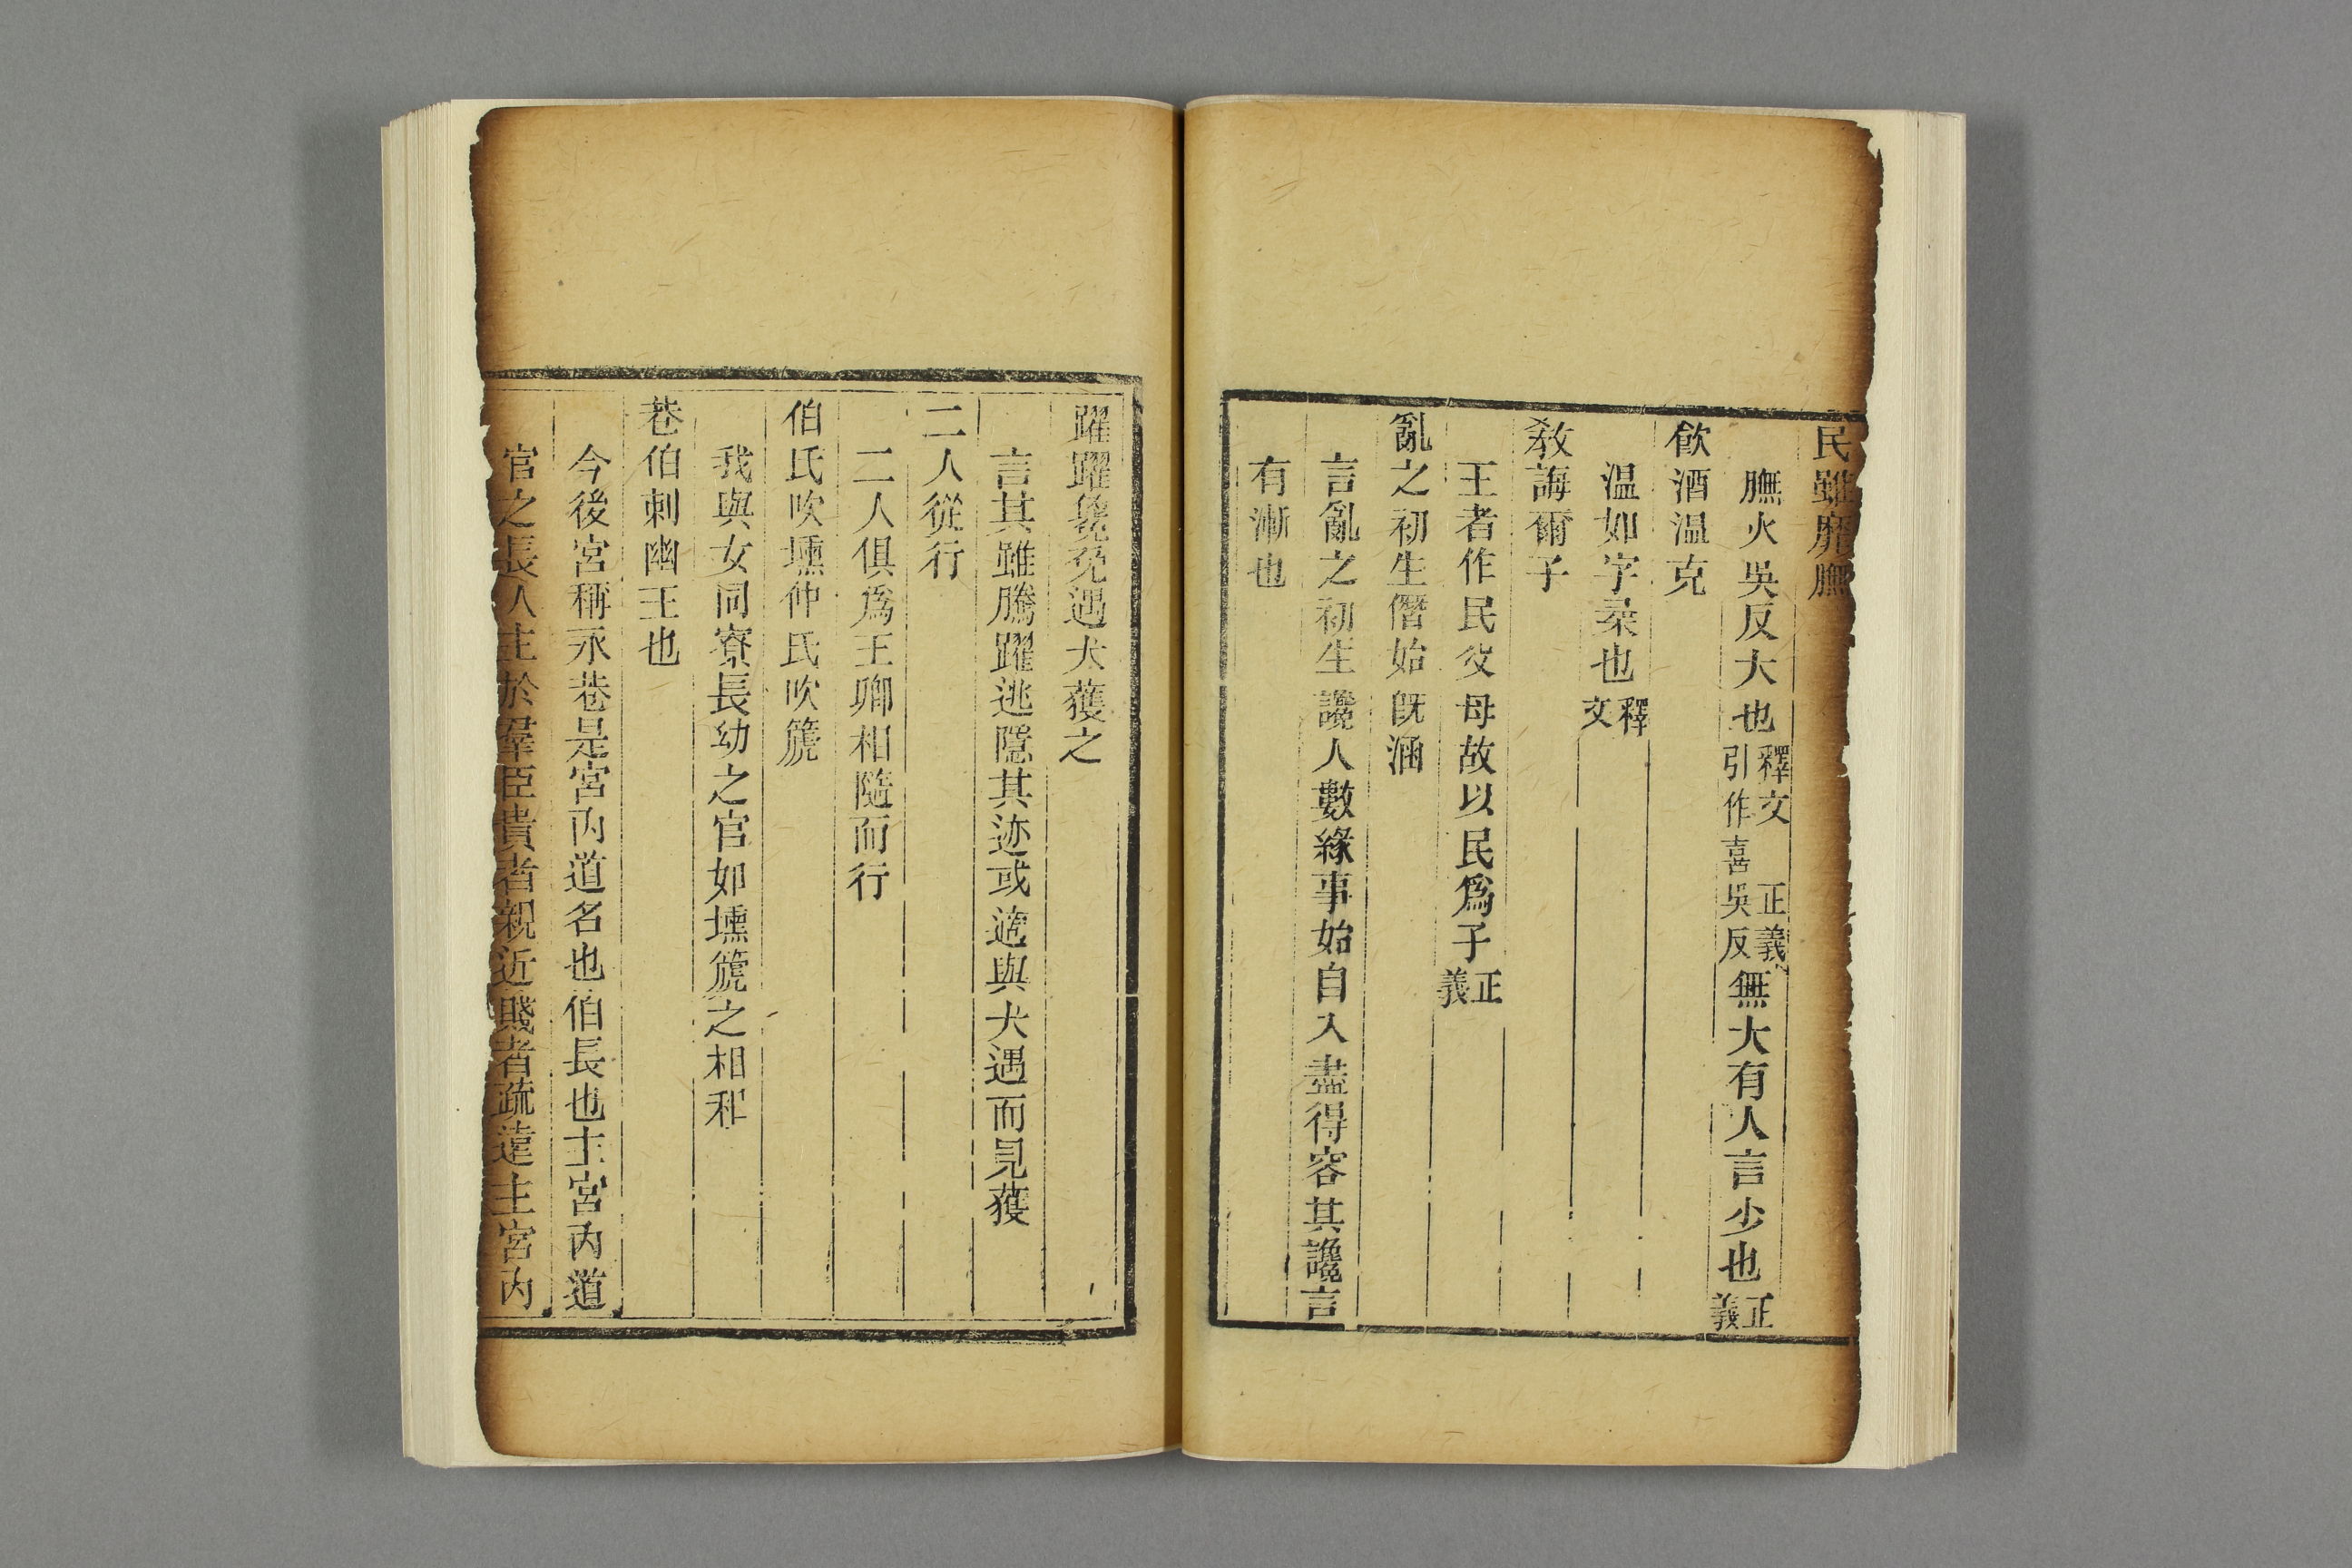 民雖靡膴
膴火吳反大也釋文引作喜吳反正義無大有人言少也正義
飮酒温克
温如字柔也釋文
敎誨爾子
王者作民父母故以民爲子正義
亂之初生僭始旣涵
言亂之初生讒人數緣事始自入盡得容其讒言
有漸也
躍躍毚兔遇犬獲之
言其雖騰躍逃隱其迹或適與犬遇而見獲
二人從行
二人俱爲王卿相隨而行
伯氏吹壎仲氏吹篪
我與女同寮長幼之官如壎篪之相和
巷伯刺幽王也
今後宮稱永巷是宮內道名也伯長也主宮內道
官之長人主於羣臣貴者親近賤者疏遠主宮內